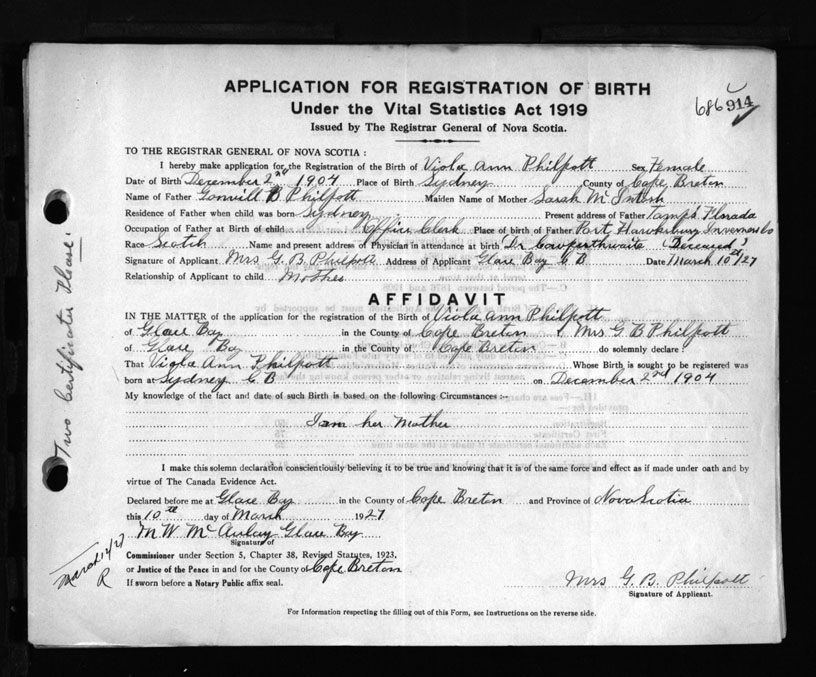 APPLICATION FOR REGISTRATION OF BIRTH
Under the Vital Statistics Act 1919
Issued by The Registrar General of Nova Scotia.
686 914
TO THE REGISTRAR GENERAL OF NOVA SCOTIA :
I hereby make application for the Registration of the Birth of Viola Ann Philpott Sex Female
Date of Birth December 2nd 1904 Place of Birth Sydney County of Cape Breton
Name of Father Gonvill B Philpott Maiden Name of Mother Sarah McIntosh
Residence of Father when child was born Sydney Present address of Father Tampa Florada
Occupation of Father at Birth of child Office Clerk Place of birth of Father Port Hawkesbury Inverness Co
Race Scotch Name and present address of Physician in attendance at birth Dr Cowperthwaite (Deceased)
Signature of Applicant Mrs G. B. Philpott Address of Applicant Glace Bay C B Date March 10th/27
Relationship of Applicant to child Mother
AFFIDAVIT
IN THE MATTER of the application for the registration of the Birth of Viola Ann Philpott
of Glace Bay in the County of Cape Breton I, Mrs G B Philpott
of Glace Bay in the County of Cape Breton do solemnly declare :
That Viola Ann Philpott Whose Birth is sought to be registered was
born at Sydney C B on December 2nd 1904
My knowledge of the fact and date of such Birth is based on the following Circumstances :-
I am her Mother
I make this solemn declaration conscientiously believing it to be true and knowing that it is of the same force and effect as if made under oath and by
virtue of The Canada Evidence Act.
Declared before me at Glace Bay in the County of Cape Breton and Province of Nova Scotia
this 10th day of March 1927
M W McAulay Glace Bay
Signature of
Commissioner under Section 5, Chapter 38, Revised Statutes, 1923,
or Justice of the Peace in and for the County of Cape Breton
If sworn before a Notary Public affix seal.
Mrs G. B. Philpott
Signature of Applicant.
For Information respecting the filling out of this Form, see Instructions on the reverse side.
Two Certificates Please!
March 12/27
R